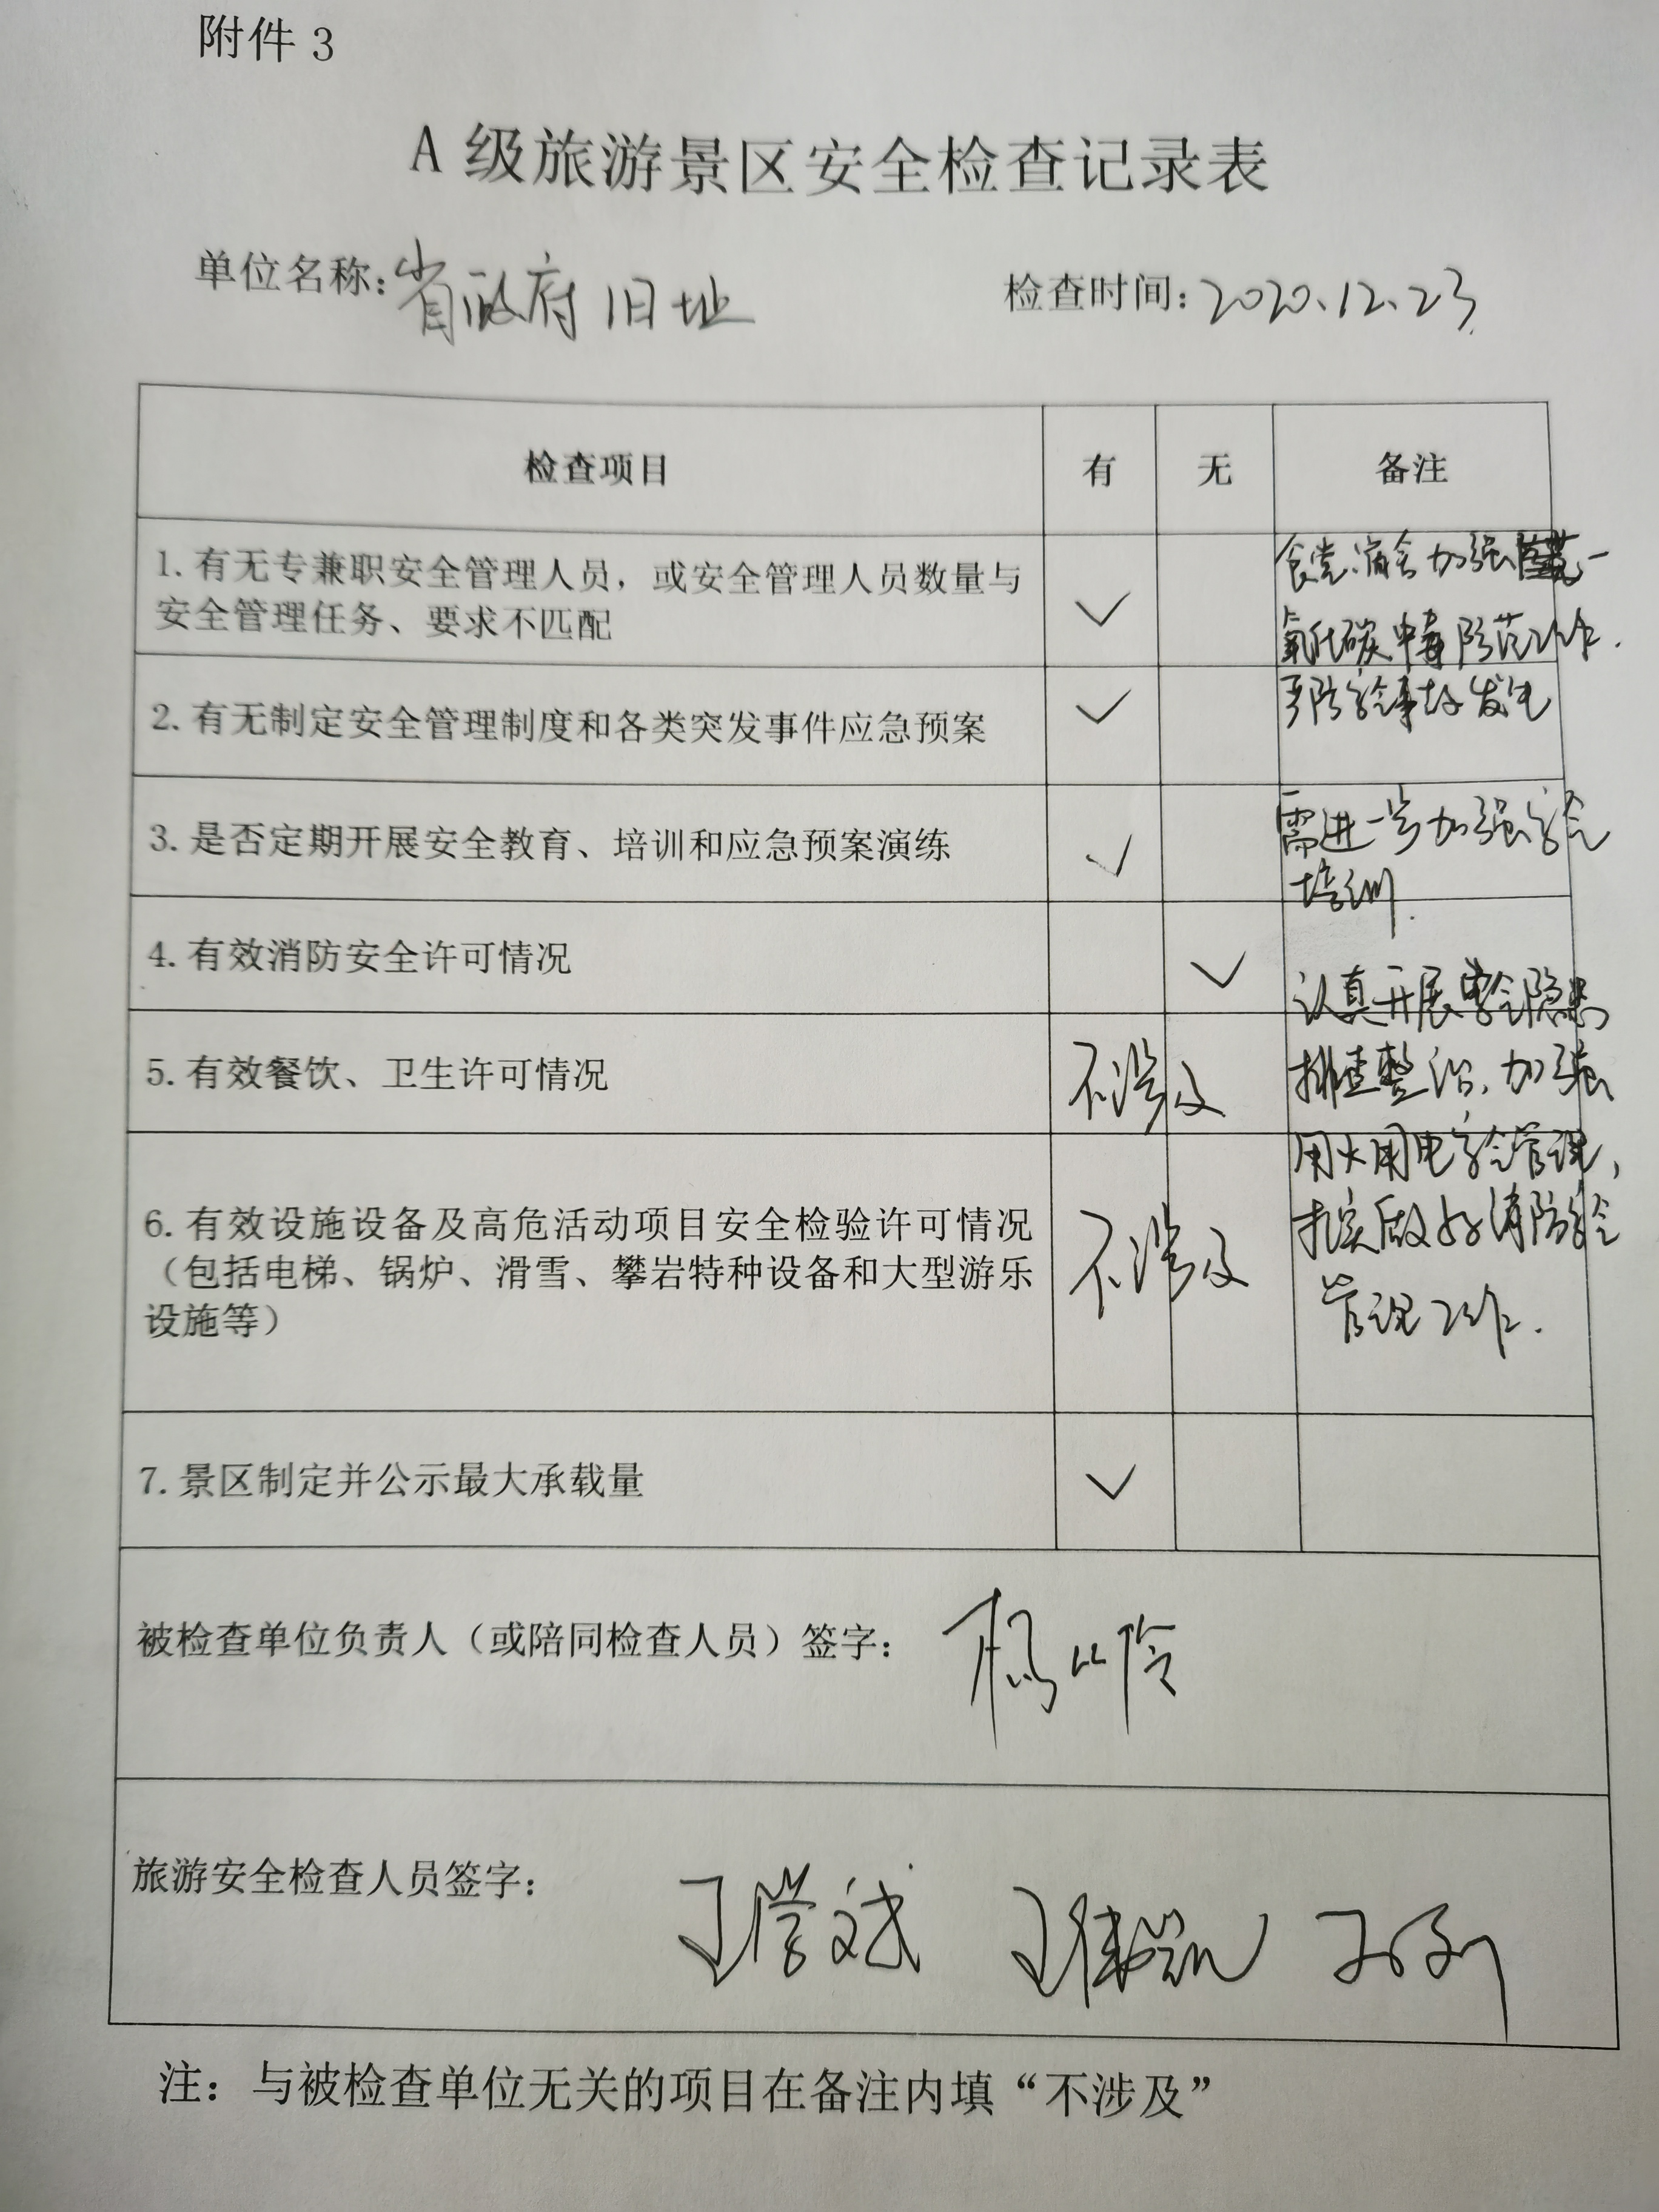 附件 3
A 级旅游景区安全检查记录表
单位名称:省政府旧址 检查时间:2020.12.23
检查项目 有 无 备注
1.有无专兼职安全管理人员，或安全管理人员数量与
安全管理任务、要求不匹配
食堂、宿舍加强一
氧化碳中毒防范工作.
2.有无制定安全管理制度和各类突发事件应急预案
严防安全事故发生
3.是否定期开展安全教育、培训和应急预案演练
需进一步加强安全
培训.
4.有效消防安全许可情况
认真开展安全隐患
5.有效餐饮、卫生许可情况 不涉及
排查整治，加强
用火用电安全管理，
6.有效设施设备及高危活动项目安全检验许可情况
（包括电梯、锅炉、滑雪、攀岩特种设备和大型游乐
设施等）
不涉及
扎实做好消防安全
管理工作.
7.景区制定并公示最大承载量
被检查单位负责人（或陪同检查人员）签字：
旅游安全检查人员签字：
注：与被检查单位无关的项目在备注内填“不涉及”